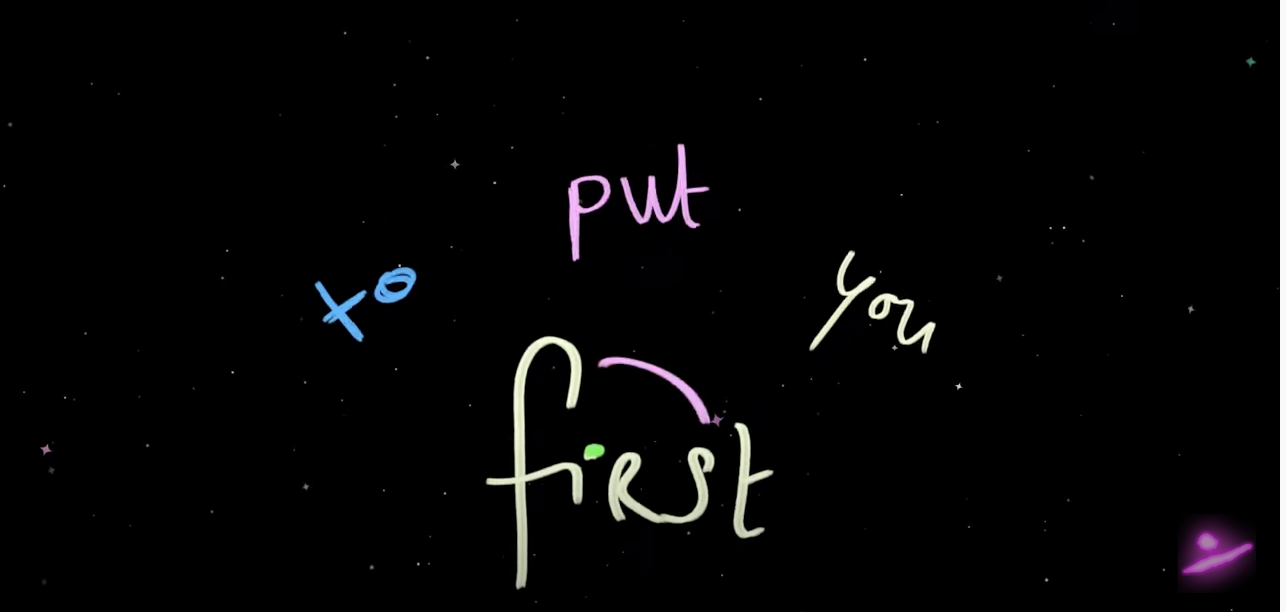 put
to
you
first